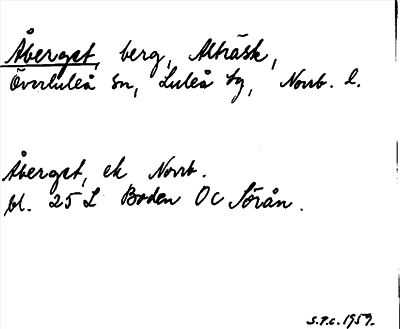 Åberget, berg, Alträsk,
Överluleå sn, Luleå tg, Norrb. l.
Åberget, ek Norrb.
bl. 25 L Boden OC Sörån.
S.T.C. 1959.